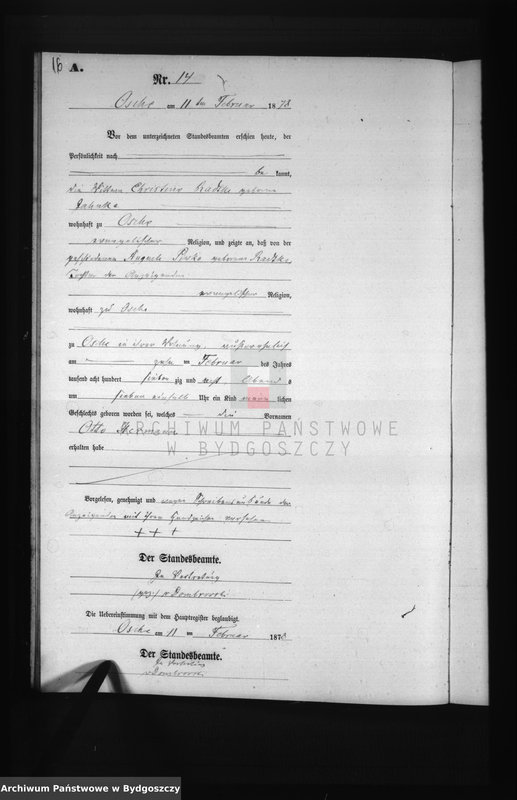 16 A.
Nr. 14
Osche am 11 ten Februar 1878
Vor dem unterzeichneten Standesbeamten erschien heute, der
Persönlichkeit nach
be kannt,
die Wittwe Christine Radtke geborene
wohnhaft zu Osche
evangelischer Religion, und zeigte an, daß von der
geschiedenen Auguste geborene Radtke
Tochter der Anzeigenden
evangelischer Religion,
wohnhaft zu Osche
zu Osche in ihrer Wohnung, außerehelich
am zehn ten Februar des Jahres
tausend acht hundert sieben zig und acht, Abends
um sieben einhalb Uhr ein Kind männ lichen
Geschlechts geboren worden sei, welches die Vornamen
Otto Hermann
erhalten habe
ARCHIWUM PAŃSTWOWE
W BYDGOSZCZY
Vorgelesen, genehmigt und wegen der
Anzeigenden mit ihren Handzeichen versehen
+ + +
Der Standesbeamte.
In Vertretung
(gez.) v Dombrowski
Die Uebereinstimmung mit dem Hauptregister beglaubigt.
Osche am 11 ten Februar 1878
Der Standesbeamte.
In Vertretung
v Dombrowski
Archiwum Państwowe w Bydgoszczy